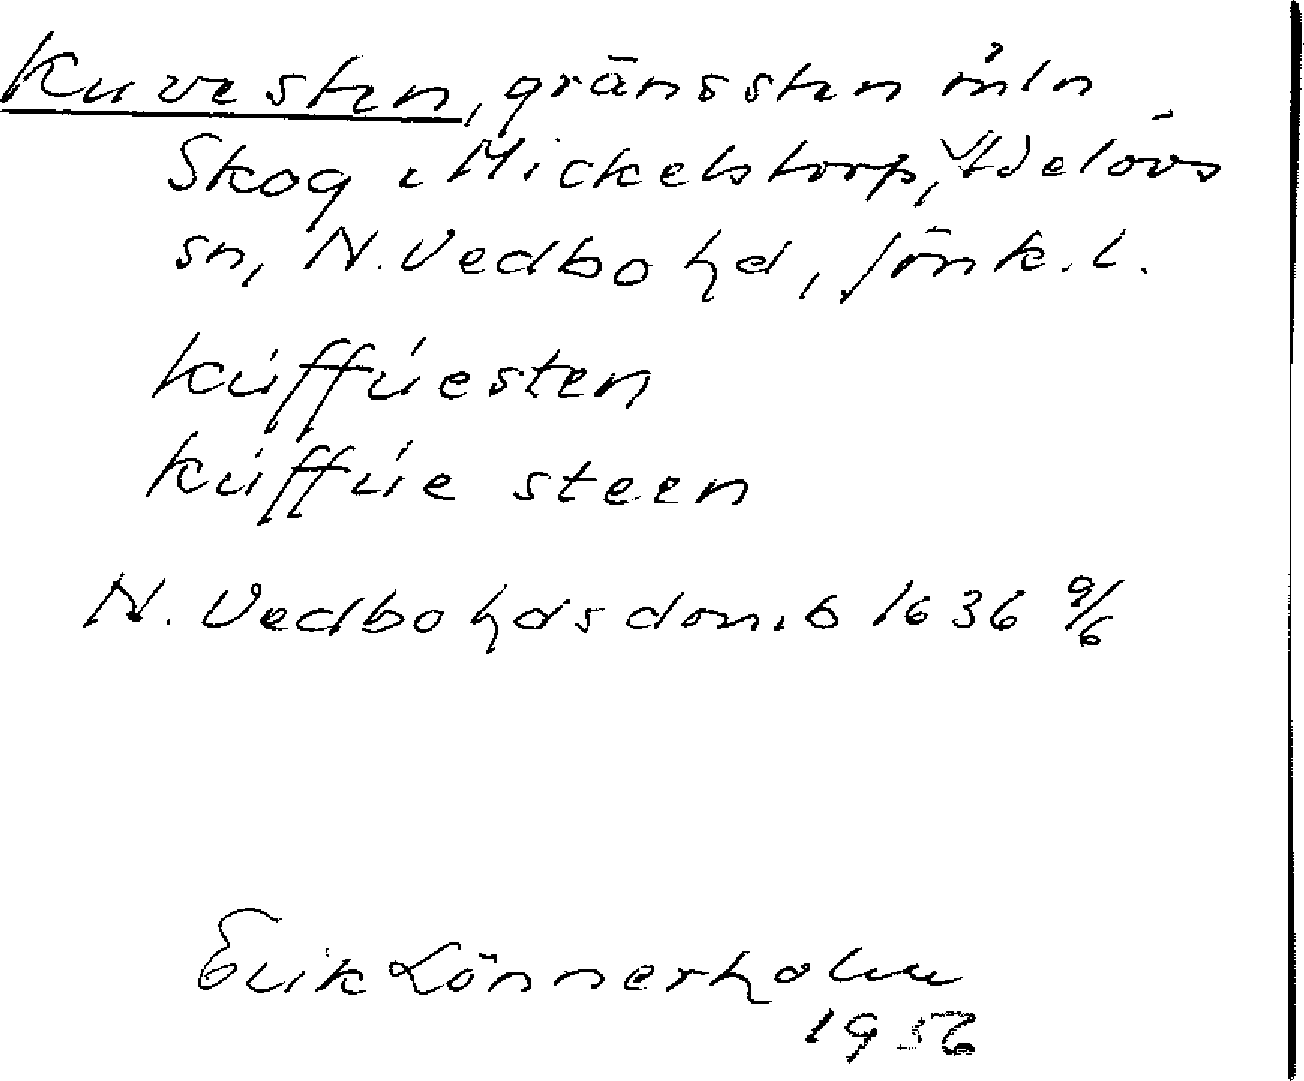 Kuvesten, gränssten mln
Skog o. Mickelstorp, Adelövs
sn, N. Vedbo hd, Jönk. l.
kúffúesten
kúffúe steen
N. Vedbo hds domb 1636 9/6
Erik Lönnerholm
1956